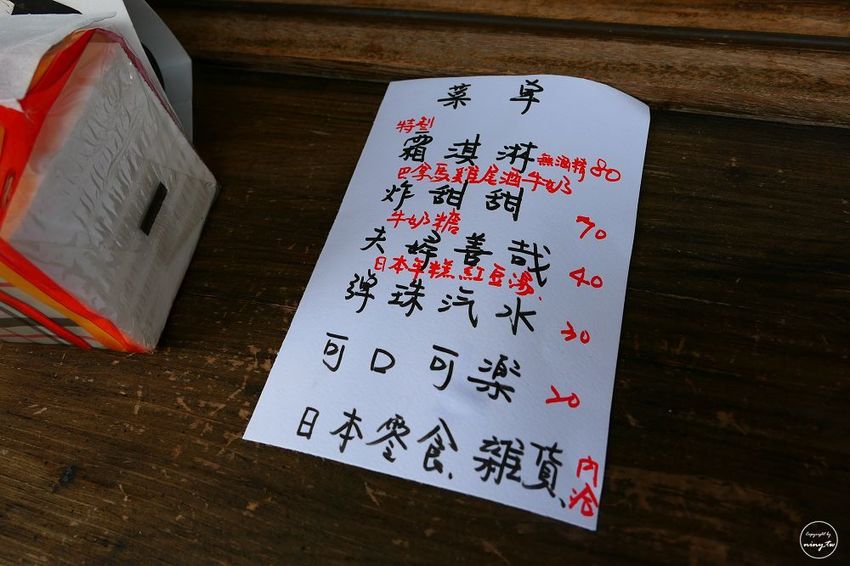 菜單
特製
霜淇淋 無酒精 80
巴拿馬雞尾酒牛奶
炸甜甜 70
牛奶糖
夫婦善哉 40
日本年糕.紅豆湯、
弹珠汽水 30
可口可楽 20
日本零食、雜貨、內洽
Copyright by
niny.tw